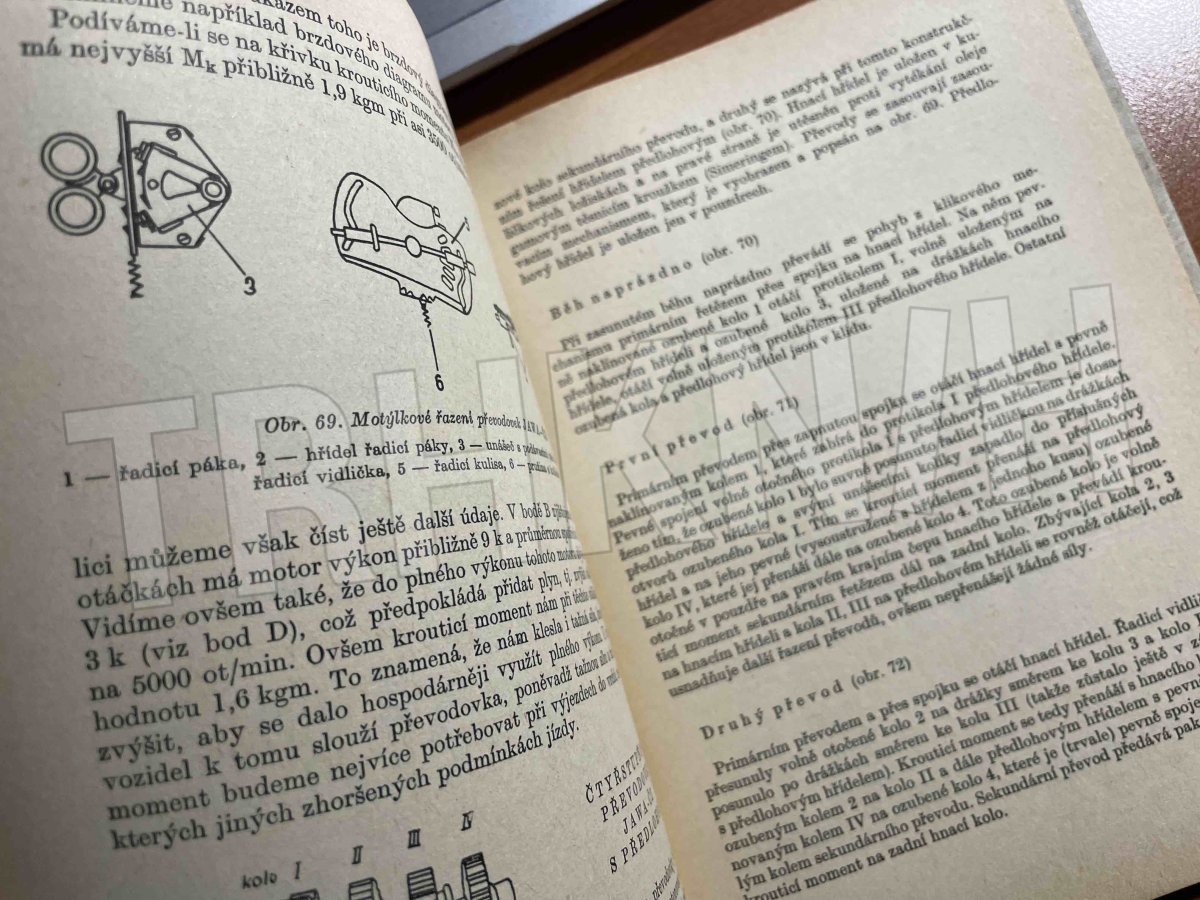 kazem toho je brzdový
například brzdového diagramu
Podíváme-li se na křivku krouticího momentu
má nejvyšší Mk přibližně 1,9 kgm při asi 3500
3
6
Obr. 69. Motýlkové řazení převodovek JAWA
1 — řadicí páka, 2 — hřídel řadicí páky, 3 — unášeč a
řadicí vidlička, 5 — řadicí kulisa, 6 —
lici můžeme však číst ještě další údaje. V bodě B
otáčkách má motor výkon přibližně 9 k a průměrnou
Vidíme ovšem také, že do plného výkonu tohoto motoru
3 k (viz bod D), což předpokládá přidat plyn, tj.
na 5000 ot/min. Ovšem krouticí moment nám při těchto
hodnotu 1,6 kgm. To znamená, že nám klesla i tažná síla
zvýšit, aby se dalo hospodárněji využít plného výkonu
vozidel k tomu slouží převodovka, poněvadž tažnou sílu a
moment budeme nejvíce potřebovat při výjezdech do
kterých jiných zhoršených podmínkách jízdy.
kolo I II III IV
ČTYŘSTUP
PŘEVODO
JAWA
S PŘEDLO
nové kolo sekundárního převodu, a druhý se nazývá při tomto konstrukč-
ním řešení hřídelem předlohovým (obr. 70). Hnací hřídel je uložen v ku-
ličkových ložiskách a na pravé straně je utěsněn proti vytékání oleje
gumovým těsnicím kroužkem (Simeringem). Převody se zasouvají zasou-
vacím mechanismem, který je vyobrazen a popsán na obr. 69. Předlo-
hový hřídel je uložen jen v pouzdrech.
Běh naprázdno (obr. 70)
Při zasunutém běhu naprázdno převádí se pohyb z klikového me-
chanismu primárním řetězem přes spojku na hnací hřídel. Na něm pev-
ně naklínované ozubené kolo 1 otáčí protikolem I, volně uloženým na
předlohovém hřídeli a ozubené kolo 3, uložené na drážkách hnacího
hřídele, otáčí volně uloženým protikolem III předlohového hřídele. Ostatní
ozubená kola a předlohový hřídel jsou v klidu.
První převod (obr. 71)
Primárním převodem přes zapnutou spojku se otáčí hnací hřídel a pevně
naklínovaným kolem 1, které zabírá do protikola I předlohového hřídele.
Pevné spojení volně otočného protikola I s předlohovým hřídelem je dosa-
ženo tím, že ozubené kolo I bylo suvně posunuto řadicí vidličkou na drážkách
předlohového hřídele a svými unášecími kolíky zapadlo do příslušných
otvorů ozubeného kola I. Tím se krouticí moment přenáší na předlohový
hřídel a na jeho pevné (vysoustružené s hřídelem z jednoho kusu) ozubené
kolo IV, které jej přenáší dále na ozubené kolo 4. Toto ozubené kolo je volně
otočné v pouzdře na pravém krajním čepu hnacího hřídele a převádí krou-
ticí moment sekundárním řetězem dál na zadní kolo. Zbývající kola 2, 3
na hnacím hřídeli a kola II, III na předlohovém hřídeli se rovněž otáčejí, což
usnadňuje další řazení převodů, ovšem nepřenášejí žádné síly.
Druhý převod (obr. 72)
Primárním převodem a přes spojku se otáčí hnací hřídel. Řadicí vidli
přesunuly volně otočené kolo 2 na drážky směrem ke kolu 3 a kolo
posunulo po drážkách směrem ke kolu III (takže zůstalo ještě v
s předlohovým hřídelem). Krouticí moment se tedy přenáší s hnacího
ozubeným kolem 2 na kolo II a dále předlohovým hřídelem s pevně
novaným kolem IV na ozubené kolo 4, které je (trvale) pevně spoje
lým kolem sekundárního převodu. Sekundární převod předává pak
krouticí moment na zadní hnací kolo.
TRHKNIH